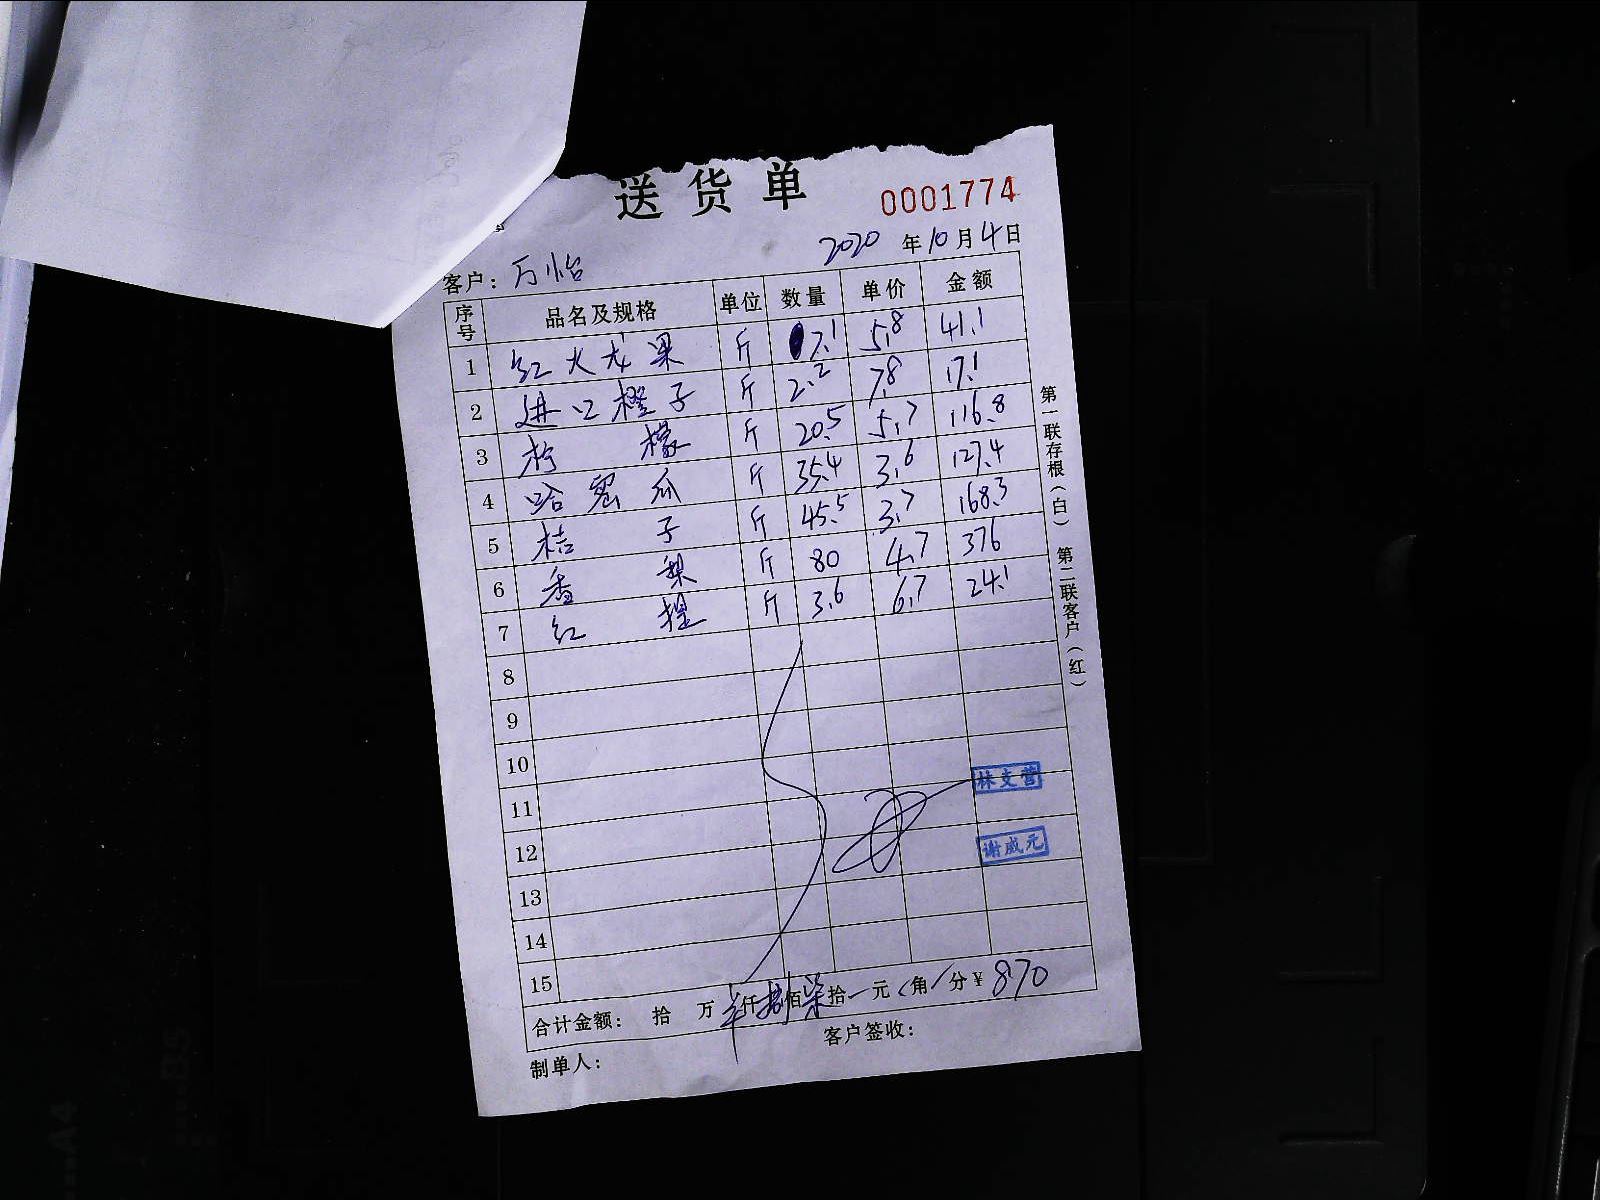 送货单 0001774
2020年10月4日
客户：万怡
序号 品名及规格 单位 数量 单价 金额
1 红火龙果 斤 7.1 5.8 41.1
2 进口橙子 斤 2.2 7.8 17.1
3 柠檬 斤 20.5 5.7 116.8
4 哈密瓜 斤 35.4 3.6 127.4
5 桔子 斤 45.5 3.7 168.3
6 香梨 斤 80 4.7 376
7 红提 斤 3.6 6.7 24.1
8
9
10
11 林支营
12 谢威元
13
14
15
合计金额： 拾 万 仟捌佰柒拾 元 角 分¥ 870
制单人： 客户签收：
第一联存根（白） 第二联客户（红）
A4
B5